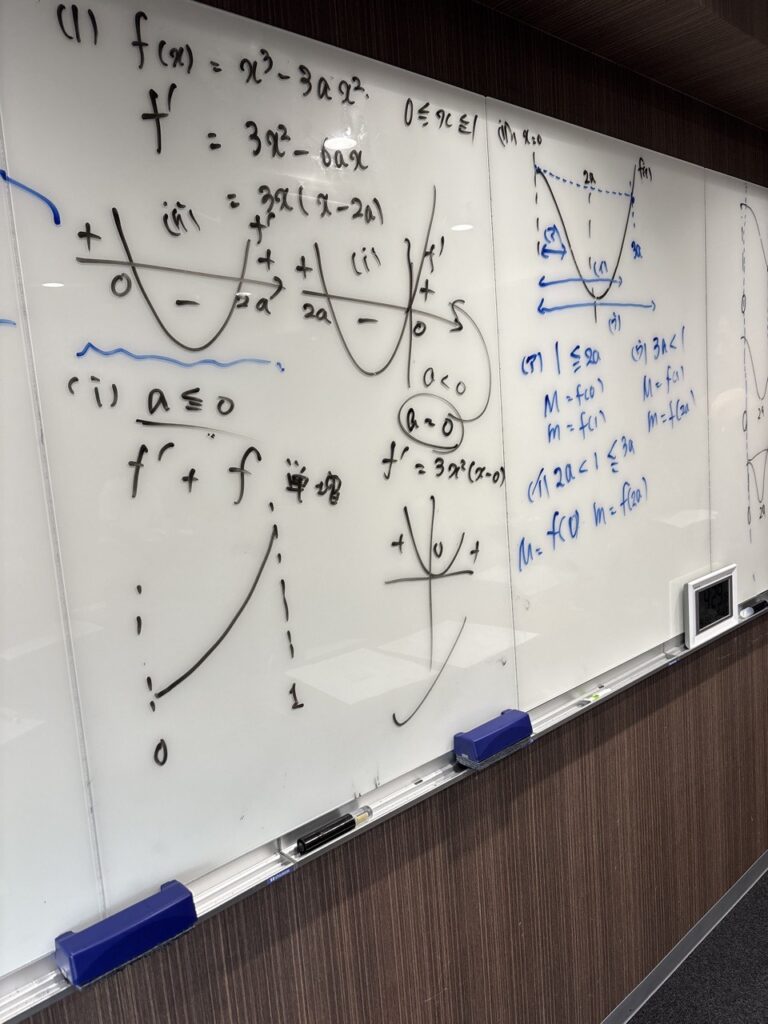 (1) f(x) = x³ - 3ax². 0 ≦ x ≦ 1
f' = 3x² - 6ax
= 3x(x - 2a)
(ii) f'
+ 0 - 2a +
(i) f'
+ 2a - 0 +
a < 0
a = 0
(i) a ≦ 0
f' + f 単増
0 1
f' = 3x²(x-0)
+ 0 +
(ii) x=0
2a f(x)
3a
(ア)
(イ)
(ウ)
(ア) 1 ≦ 2a
M = f(0)
m = f(1)
(イ) 2a < 1 ≦ 3a
M = f(0) m = f(2a)
(ウ) 3a < 1
M = f(1)
m = f(2a)